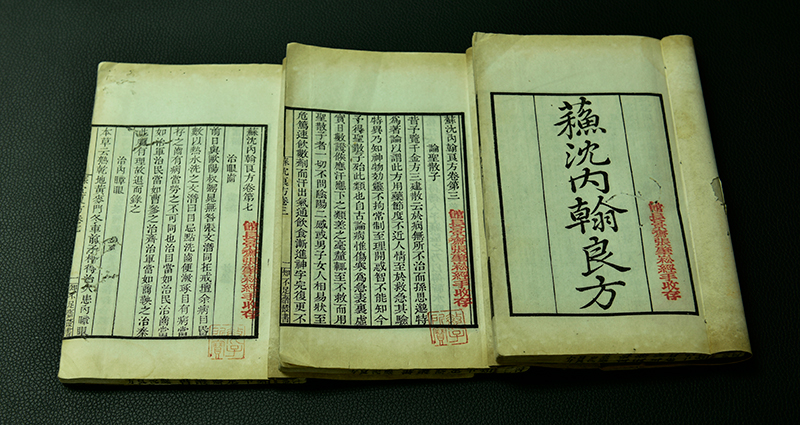 蘓沈内翰良方
經手收存
蘇沈内翰良方卷第三
論聖散子
昔予覽千金方三建散云於病無所不治而孫思邈特
為著論以謂此方用藥節度不近人情至於救急其驗
特異乃知神物妙靈不拘常制至理開感智不能知今
予得聖散子殆此類也自古論病惟傷寒為急表裏虛
實日數證候應汗應下之類差之毫釐輒至不救而用
聖散子者一切不問陰陽二感或男子女人相易狀至
危篤速飲數劑而汗出氣通飲食漸進神宇完復更不
知不足齋叢書
蘇沈内翰良方卷第七
經手收存
治眼齒
前日與歐陽叔弼晁無咎張文潛同在戒壇余病目昏
數以熱水洗之文潛曰目忌點洗齒便漱琢目有病當
存之齒有病當勞之不可同也治目當如治民治齒當
如治軍治民當如曹參之治齊治軍當如商鞅之治秦
頗有理故退而錄之
治内障眼
本草云熟乾地黄麥門冬車前子患内障眼